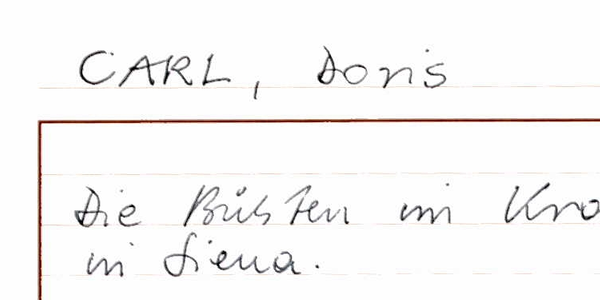 CARL, Doris
Die Büsten im Kra
in Siena.